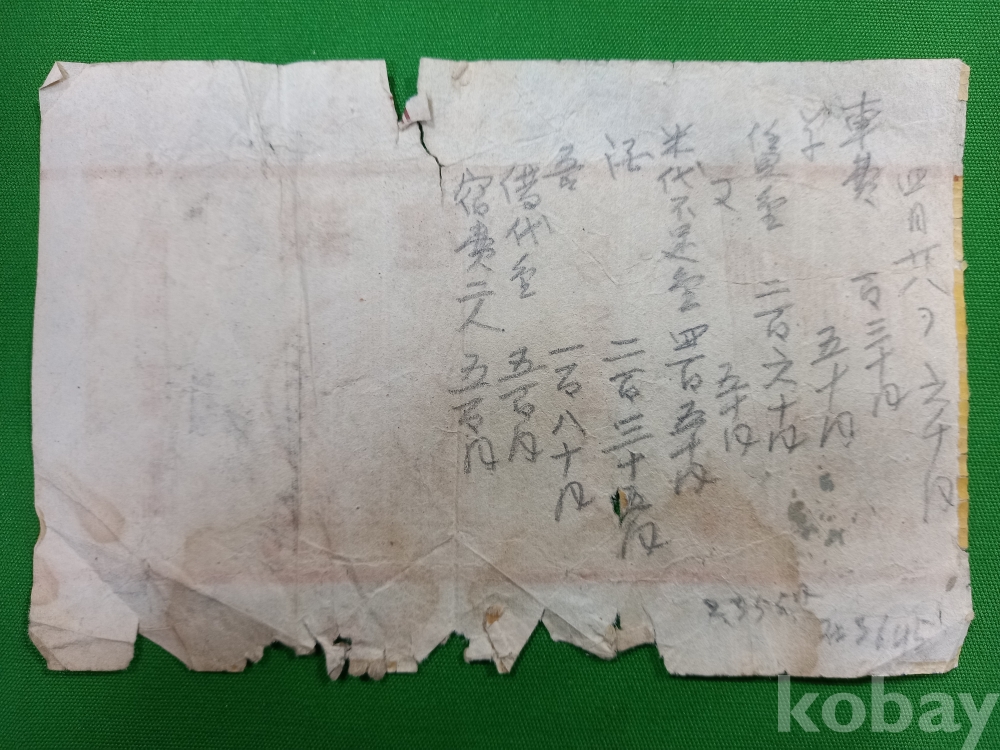 四月廿八日 六千円
車費 百三十円
五十円
賃金 二百六十円
又 五十円
米代不足金 四百五十円
酒 二百三十五円
一百八十円
借代金 五百円
宿費二人 五百円
2,355円
3645
kobay